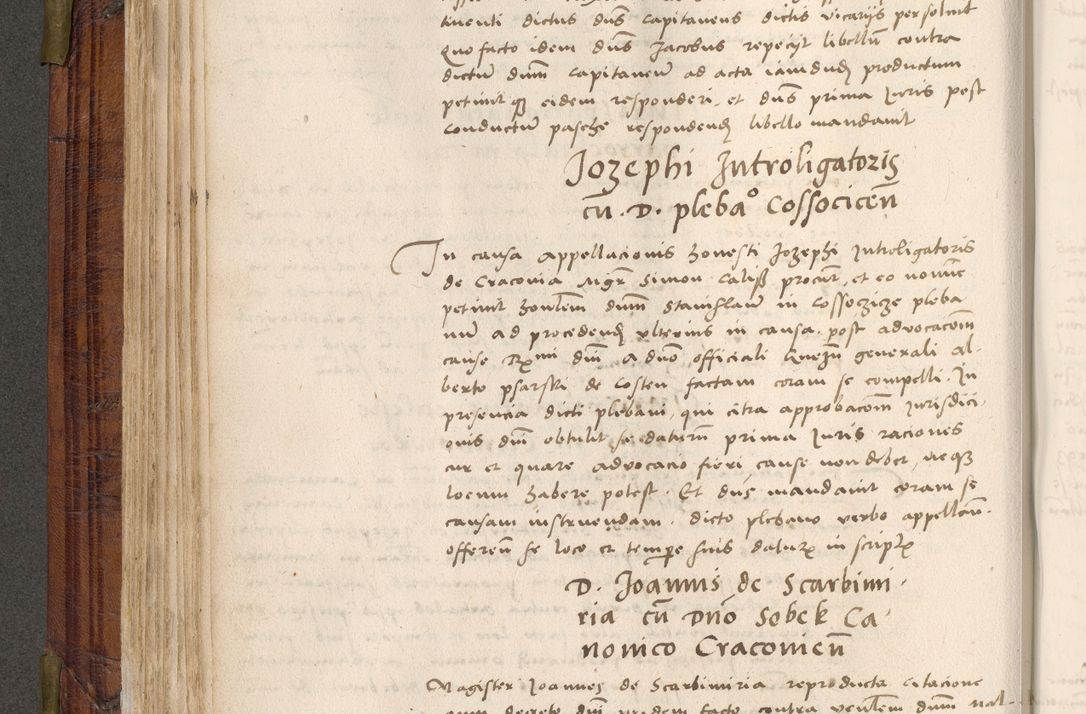 tinenti dictus dūs Capitaneus dictis vicarijs persoluit
Quo facto idem dūs Jacobus repecijt libellū contra
dictū dūm Capitaneū ad acta iamdudū productum
petiuit q̄ eidem responderi, et dūs prima Iuris post
conductū pasche respondendū libello mandauit
Jozephi Introligatoris
cū D. plebaº Cossocicen̄
In causa appellacionis honesti Jozephi Introligatoris
de Cracouia Mgr̄ Simon Caliss procur̄, et eo noīne
petiuit honlem dūm Stanislaū in Cossoczicze pleba
nū ad procedendū vlterius in causa post aduocacōm
cause Rmi dūi a dūo officiali Gnezn̄ generali Al-
berto psarski de Costen factam coram se compelli. In
presencia dicti plebani, qui citra approbacōm Iurisdici
onis dūi obtulit se daturū prima Iuris raciones
cur et quare aduocacio fieri cause non debet, neq̄
locum habere potest. Et dūs mandauit coram se
causam instruendam. dicto plebano verbo appellan̄.
offeren̄ se loco et tempe suis daturū in scriptis
D. Joannis de Scarbimi
ria cū Dno Sobek Ca
nonico Cracouien̄
Magister Joannes de Scarbimiria reproducta citacione
cum decreto dūi eiusdem facto contra venlem dūm Nal-